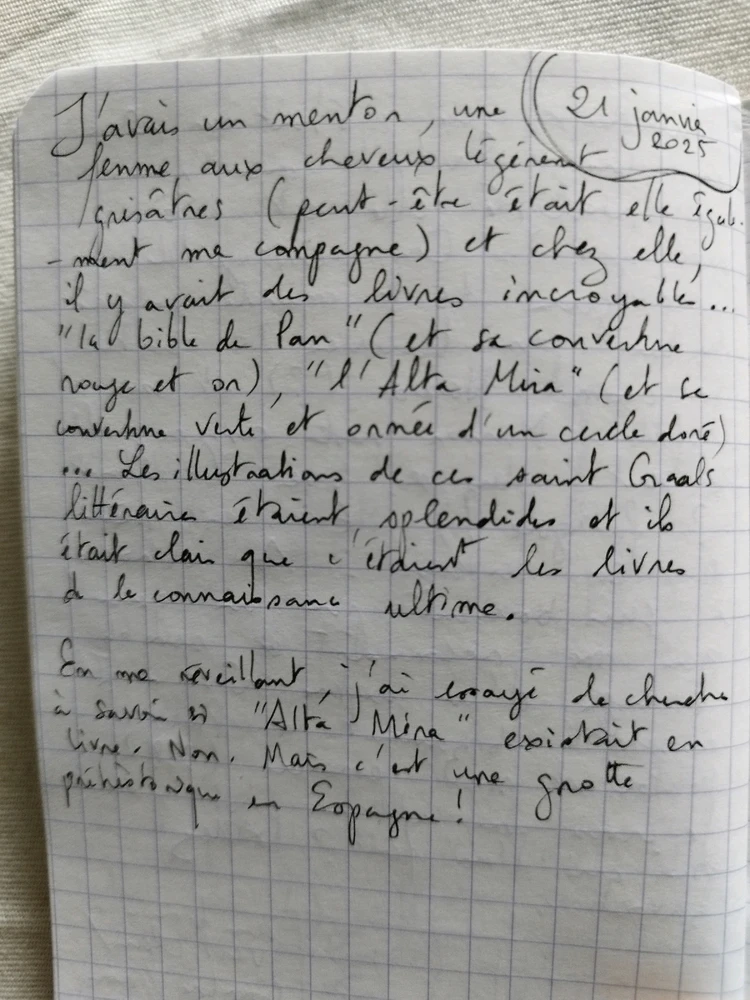 21 janvier
2025
J'avais un mentor, une
femme aux cheveux légèrement
grisâtres (peut-être était elle égale-
-ment ma compagne) et chez elle,
il y avait des livres incroyables...
"la bible de Pan" (et sa couverture
rouge et or), "l'Alta Mira" (et sa
couverture verte et ornée d'un cercle doré)
... Les illustrations de ces saint Graals
littéraires étaient splendides et il
était clair que c'étaient les livres
de la connaissance ultime.
En me réveillant, j'ai essayé de chercher
à savoir si "Alta Mira" existait en
livre. Non. Mais c'est une grotte
préhistorique en Espagne !